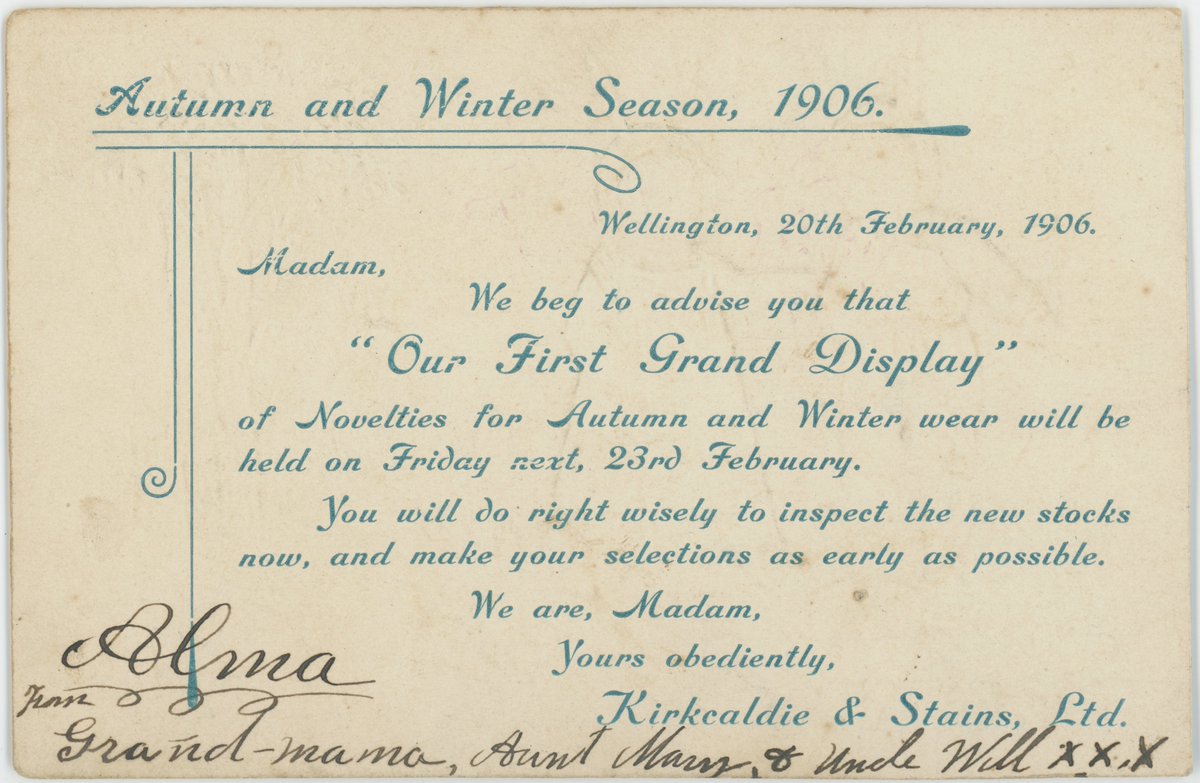 Autumn and Winter Season, 1906.
Wellington, 20th February, 1906.
Madam,
We beg to advise you that
"Our First Grand Display"
of Novelties for Autumn and Winter wear will be
held on Friday next, 23rd February.
You will do right wisely to inspect the new stocks
now, and make your selections as early as possible.
We are, Madam,
Yours obediently,
Kirkcaldie & Stains, Ltd.
Alma
From
Grand-mama, Aunt Mary, & Uncle Will x.x.x